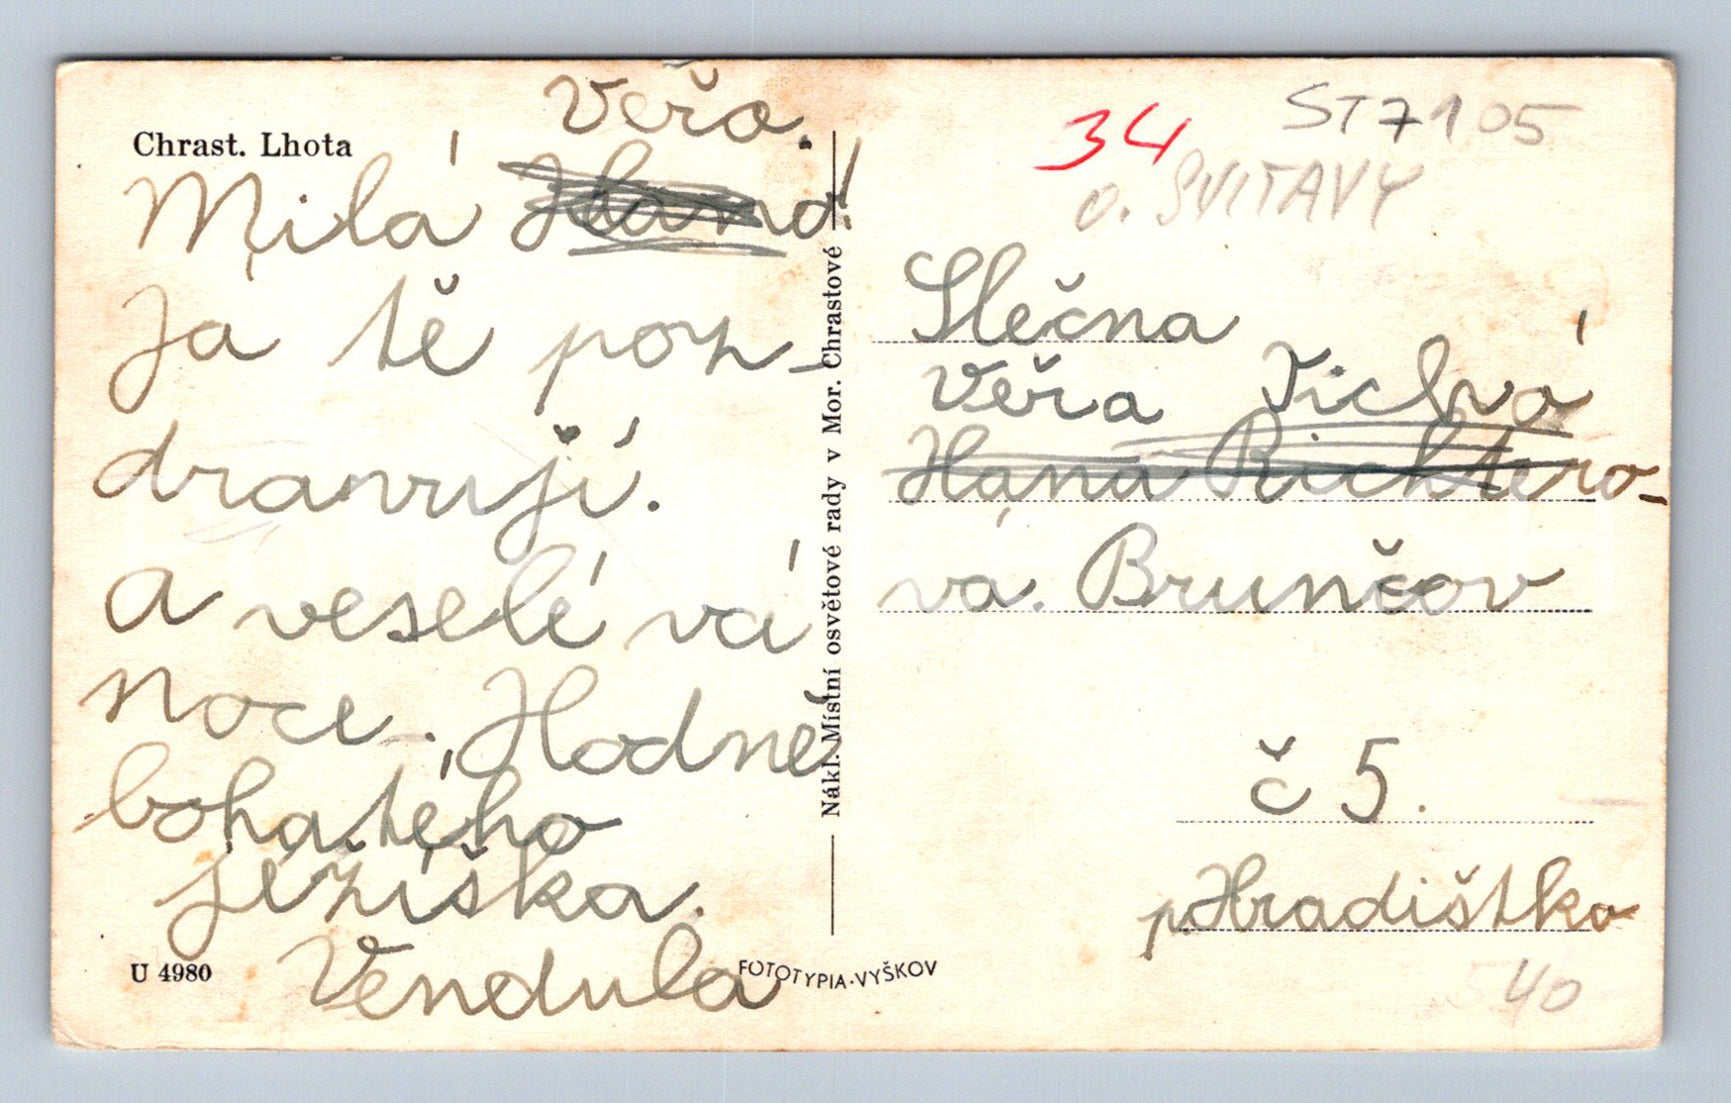 Chrast. Lhota
Veřo.
Milá Hano!
Ja tě poz-
dravují.
a veselé vá
noce. Hodně
bohatého
ježíška.
Vendula
U 4980
FOTOTYPIA-VYŠKOV
Nákl. Místní osvětové rady v Mor. Chrastové
34
ST7105
o. SVITAVY
Slečna
Věra Tichá
Hana Richtero-
va. Brunčov
č 5.
p. Hradištko
40